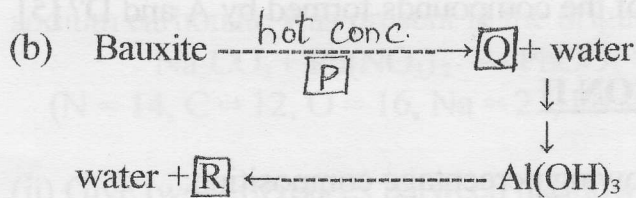 (b) Bauxite hot conc. P → Q + water
↓
↓
water + R ← Al(OH)₃